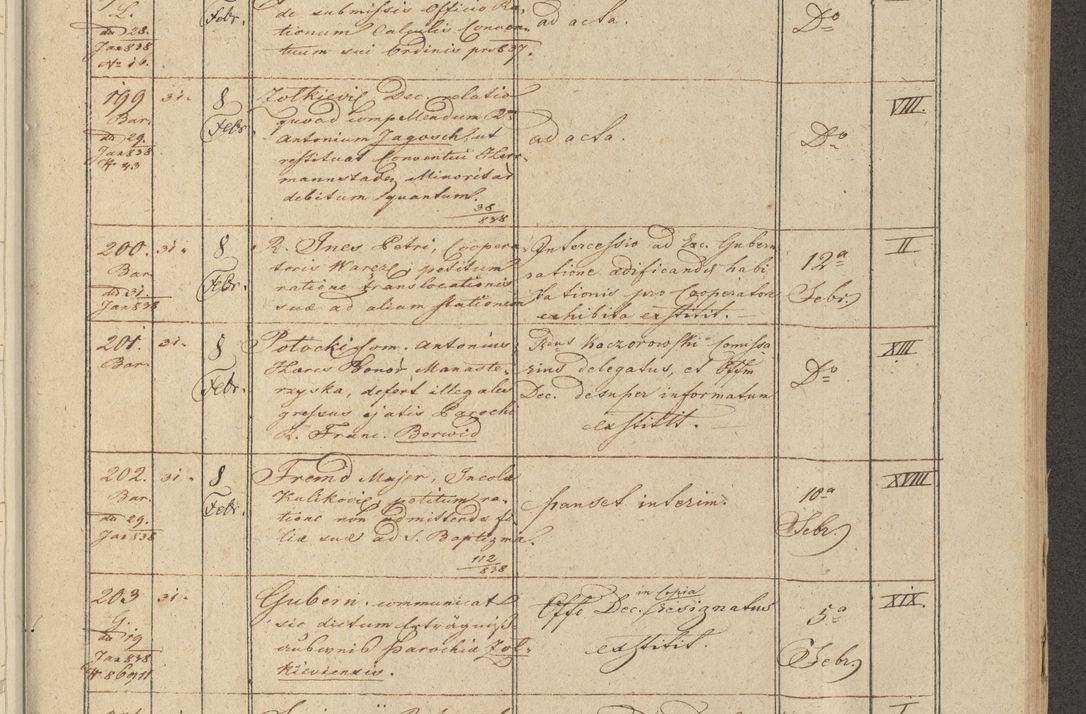 L.
Febr.
de submissis Officio Ra-
tionum Calculis Conven-
tuum sui Ordinis pro 837.
ad acta.
Do
dto 28.
Jan 838
No 16.
199
31.
8
Febr.
Bar.
dto 29
Jan 838
N 43
Zolkiew Dec. relatio
quoad compellendum
Antonium Jagosch, ut
restituat Conventui Her-
mannstadez Minoritar
debitum quantum.
38/838
ad acta.
Do
VIII.
200.
31.
8
Febr.
Bar.
dto 31
Jan 838
R. Ines Petri, Coopera-
toris Waręż petitum
ratione translocationis
suæ ad aliam stationem
Intercessio ad Exc. Gubern
ratione ædificandæ habi
tationis pro Cooperatore
exhibita exstitit.
12a
Febr.
II.
201.
31.
8
Febr.
Bar.
Potocki Com. Antonius
Hæres Bonor Manaste-
rzyska, defert illegales
gressus ejatis Parochi
R. Franc. Borwid
Rdus Kaczorowski Comissa
rius delegatus, et Offm
Dec. desuper informatum
exstitit.
Do
XIII
202.
31.
8
Febr.
Bar.
dto 29.
Jan 838
Fremd Majer, Incola
Kulikoviæ, petitum ra-
tione non admittendæ fi-
liæ suæ ad S. Baptizma.
112/838
manset interim.
10a
Febr.
XVIII
203
31.
G.
dto 19
Jan 838
Gubern. communicat
sic dictum Erträgniß
Parochiæ Zol-
kieviensis.
in Copia
Dec. resignatus
exstitit.
5a
Febr.
XIX.